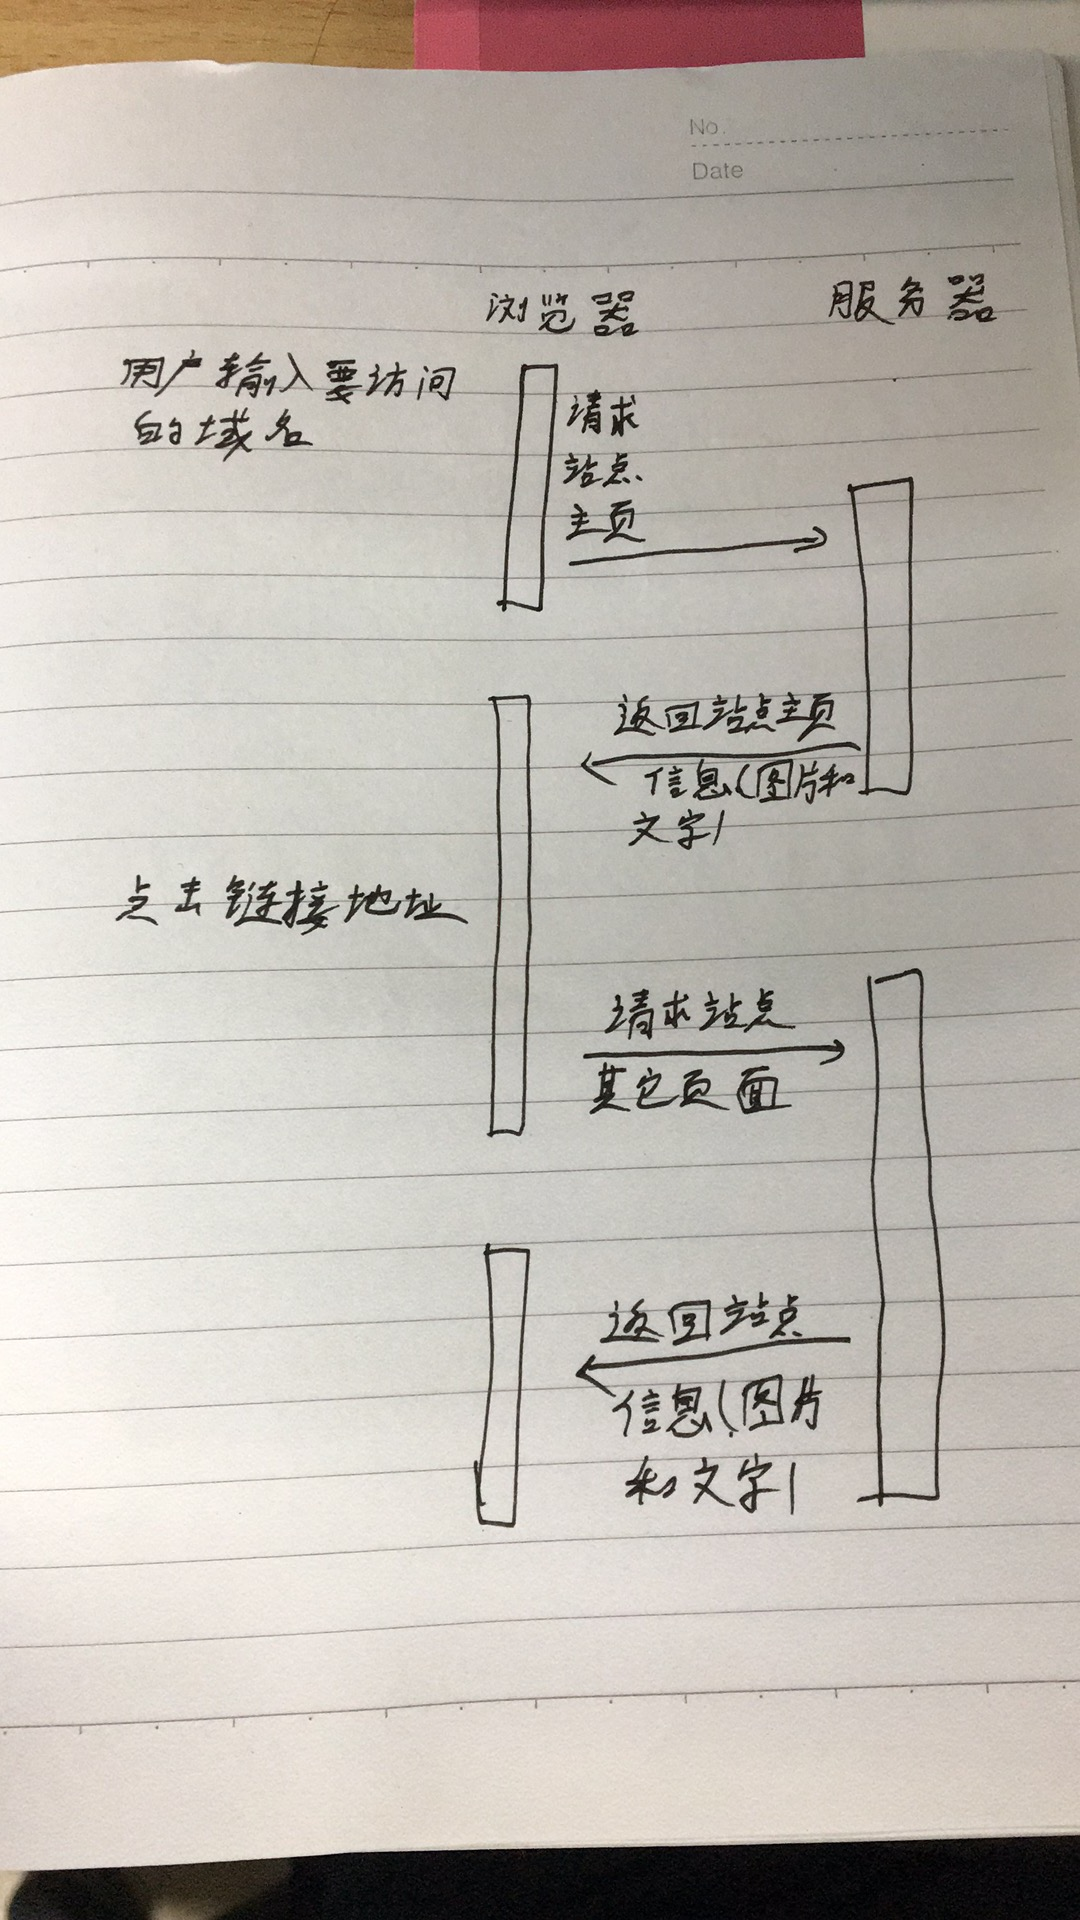 No.
Date
浏览器
服务器
用户输入要访问
的域名
请求
站点
主页
返回站点主页
信息(图片和
文字)
点击链接地址
请求站点
其它页面
返回站点
信息(图片
和文字)